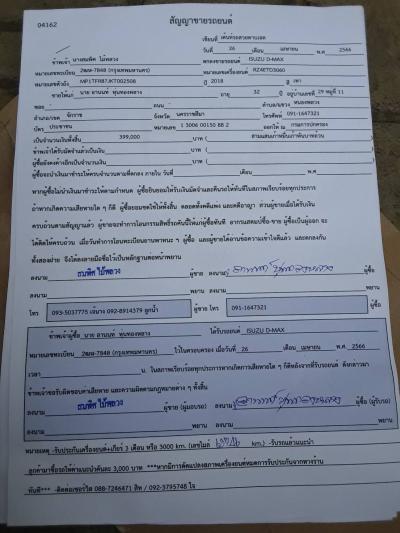 04162
สัญญาขายรถยนต์
เขียนที่ เต็นท์รถสวยพานเจต
วันที่ 26 เดือน เมษายน พ.ศ 2566
ข้าพเจ้า นางสมพิศ ไม้พลวง ตกลงขายรถยนต์ ISUZU D-MAX
หมายเลขทะเบียน 2ฒฬ-7848 (กรุงเทพมหานคร) หมายเลขเครื่องยนต์ RZ4ETD3060
หมายเลขตัวถัง MP1TFR87JKT002508 ปี 2018 สี เทา
ขายให้แก่ นาย อานนท์ พุ่นทองหลาง อายุ 32 ปี อยู่บ้านเลขที่ 29 หมู่ที่ 11
ซอย - ถนน - ตำบล/แขวง หนองพลวง
อำเภอ/เขต จักราช จังหวัด นครราชสีมา โทรศัพท์ 091-1647321
บัตร ประชาชน หมายเลข 1 3006 00150 88 2 ออกให้ ณ กรมการปกครอง
เป็นจำนวนเงินทั้งสิ้น 399,000 บาท ( สามแสนเก้าหมื่นเก้าพันบาทถ้วน )
ข้าพเจ้าได้รับมัดจำแล้วเป็นเงิน บาท ( )
ผู้ซื้อยังคงค้างอีกเป็นจำนวนเงิน บาท ( )
ผู้ซื้อจะนำเงินมาชำระให้ครบจำนวนตามที่ตกลง ภายใน วันที่ เดือน พ.ศ
หากผู้ซื้อไม่นำเงินมาชำระให้ตามกำหนด ผู้ซื้อยินยอมให้ริบเงินมัดจำและคืนรถให้ทันทีในสภาพเรียบร้อยทุกประการ
ถ้าหากเกิดความเสียหายใด ๆ ก็ดี ผู้ซื้อยอมชดใช้ให้ทั้งสิ้น ตลอดทั้งคดีแพ่ง และคดีอาญา ส่วนผู้ขายเมื่อได้รับเงิน
ครบถ้วนตามสัญญาแล้ว ผู้ขายจะทำการโอนกรรมสิทธิ์รถคันนี้ให้แก่ผู้ซื้อทันที อากรแสตมป์ซื้อ-ขาย ผู้ซื้อเป็นผู้ออก จะ
ได้คิดให้ครบถ้วน เมื่อวันทำการโอนทะเบียนยานพาหนะ ฯ ผู้ซื้อ และผู้ขายได้อ่านข้อความเข้าใจดีแล้ว และตกลงกัน
ทั้งสองฝ่าย จึงได้ลงลายมือชื่อไว้เป็นหลักฐานต่อหน้าพยาน
ลงนาม สมพิศ ไม้พลวง ผู้ขาย ลงนาม ผู้ซื้อ
ลงนาม พยาน ลงนาม พยาน
โทร 093-5037775 เจนวา 092-8914379 ลูกน้ำ ผู้ขาย โทร 091-1647321 ผู้ซื้อ
ข้าพเจ้าผู้ซื้อ นาย อานนท์ พุ่นทองหลาง ได้รับรถยนต์ ISUZU D-MAX
หมายเลขทะเบียน 2ฒฬ-7848 (กรุงเทพมหานคร) ไว้ในครอบครอง เมื่อวันที่ 26 เดือน เมษายน พ.ศ. 2566
เวลา น. ในสภาพเรียบร้อยทุกประการหากเกิดการเสียหายใด ๆ ก็ดีหลังจากที่รับรถยนต์ ดังกล่าวมา
ข้าพเจ้าขอรับผิดชอบค่าเสียหาย และความผิดตามกฎหมายต่าง ๆ ทั้งสิ้น
ลงนาม สมพิศ ไม้พลวง ผู้ขาย (ผู้มอบรถ) ลงนาม ผู้ซื้อ (ผู้รับรถ)
ลงนาม พยาน ลงนาม พยาน
หมายเหตุ -รับประกันเครื่องยนต์+เกียร์ 3 เดือน หรือ 3000 km. (เลขไมล์ km.) -รับรถแล้วแนะนำ
ลูกค้ามาซื้อรถให้ค่าแนะนำคันละ 3,000 บาท ***หากมีการดัดแปลงสภาพเครื่องยนต์หมดการรับประกันจากทางร้าน
ทันที*** -ติดต่อเซอร์วิส 088-7246471 สิท / 092-3795748 ใจ